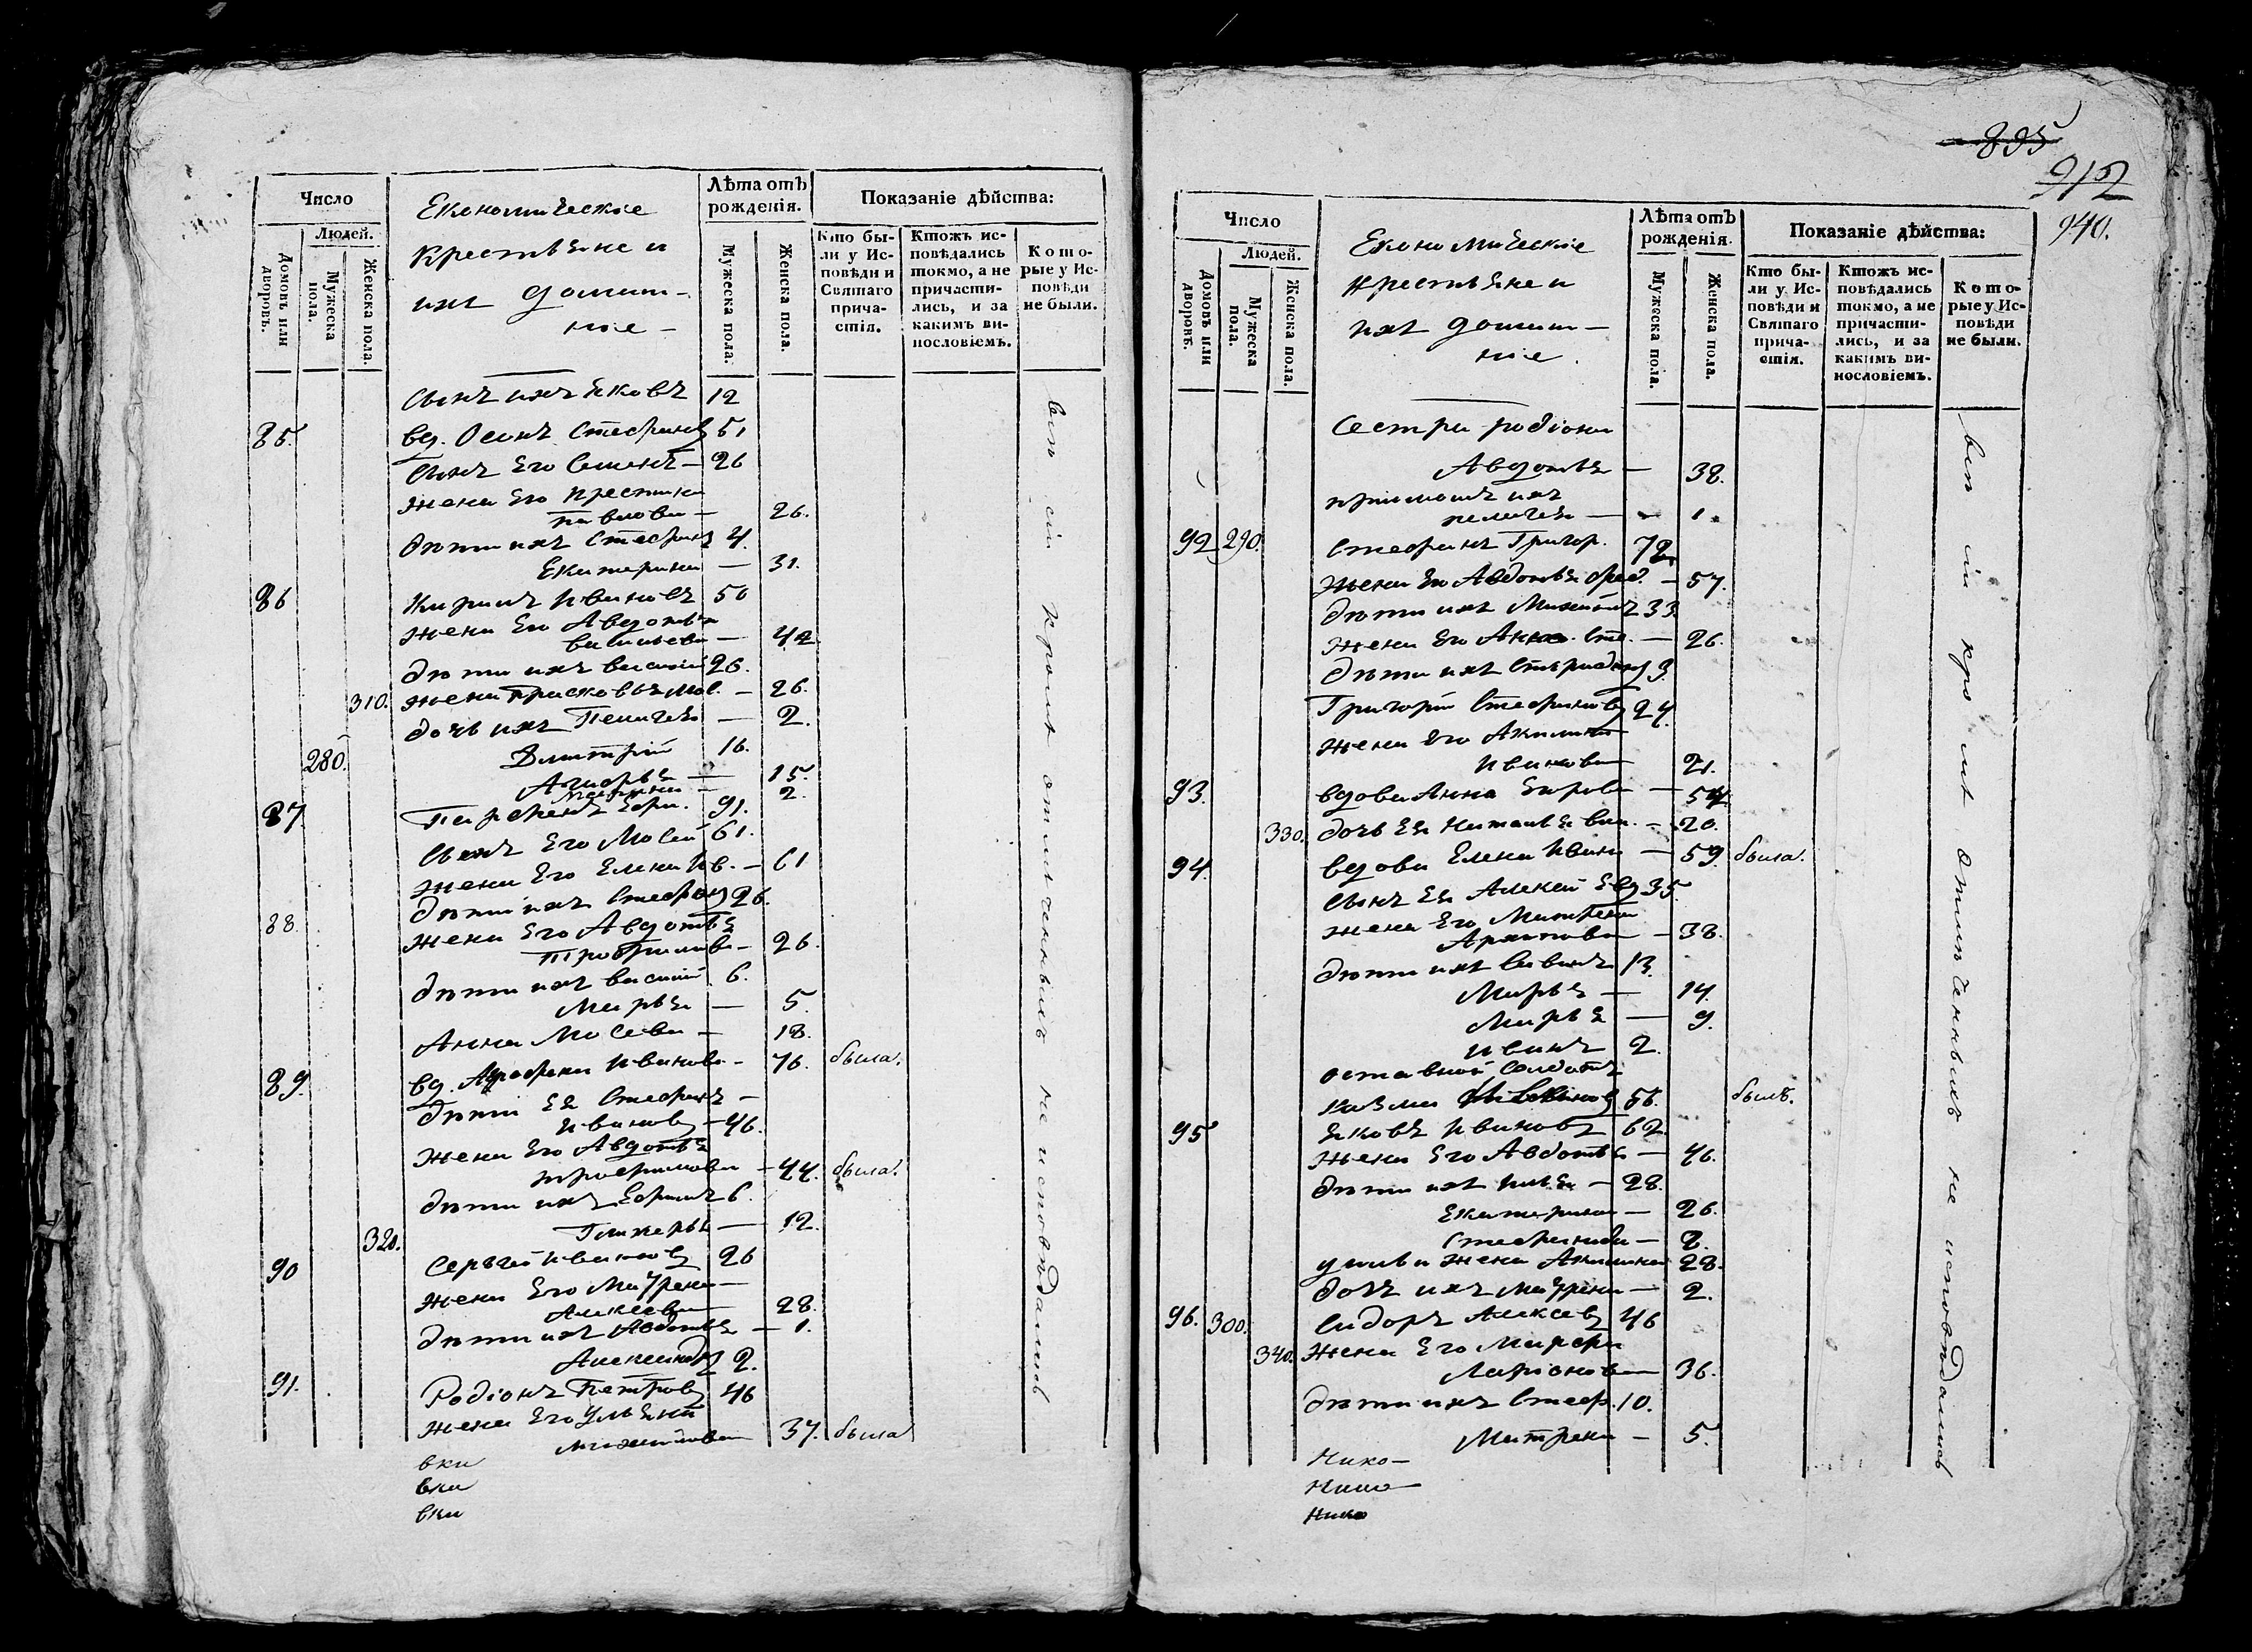 Число
Людей.
Домовъ или дворовъ.
Мужеска пола.
Женска пола.
Економическіе
крестьяне и
ихъ домаш-
ніе
Лѣта отъ рожденія.
Мужеска пола.
Женска пола.
Показаніе дѣйства:
Кто бы-
ли у Ис-
повѣди и
Святаго
прича-
стія.
Ктожъ ис-
повѣдались
токмо, а не
причасти-
лись, и за
какимъ ви-
нословіемъ.
Кото-
рые у Ис-
повѣди
не были.
сынъ ихъ Яковъ 12
85. вд. Осипъ Стефановъ 51
сынъ его Семенъ — 26
жена его
Павлова — 26.
дѣти ихъ Стефанъ 4.
Екатерина — 31.
86 Кирилъ Ивановъ 50
жена его Авдотья
Васильева — 42
дѣти ихъ Василій 26.
310. жена Прасковья — 26.
дочь ихъ Пелагея — 2.
280. Дмитрій 16.
— 15.
— 2.
87. Парфенъ 91.
сынъ его Мосей 61.
жена его Елена Ив. — 61
дѣти ихъ Стефанъ 26.
88. жена его Авдотья
— 26.
дѣти ихъ Василій 6.
Марья — 5.
Анна Мосева — 18.
89. вд. Агрофена Иванова — 76. была.
дѣти ея Стефанъ —
Ивановъ — 46.
жена его Авдотья
Трофимова — 44. была.
дѣти ихъ Ефимъ 6.
320. Гликерья — 12.
90 Сергей Ивановъ 26
жена его Матрена —
Алексеева 28.
дѣти ихъ Авдотья — 1.
Александръ 2.
91. Родіонъ Петровъ 46
жена его Ульяна
Михайлова 37. была
вки
вки
вки
всѣ сіи кромѣ отмѣченныхъ не исповѣдались
835
912
940.
Число
Людей.
Домовъ или дворовъ.
Мужеска пола.
Женска пола.
Економическіе
крестьяне и
ихъ домаш-
ніе.
Лѣта отъ рожденія.
Мужеска пола.
Женска пола.
Показаніе дѣйства:
Кто бы-
ли у Ис-
повѣди и
Святаго
прича-
стія.
Ктожъ ис-
повѣдались
токмо, а не
причасти-
лись, и за
какимъ ви-
нословіемъ.
Кото-
рые у Ис-
повѣди
не были.
Сестра Родіона
Авдотья — 38.
ихъ
Пелагея — 1.
92 290. Стефанъ Григор. 72
жена его Авдотья — 57.
дѣти ихъ Михаилъ 33.
жена его Анна — 26.
дѣти ихъ 3
Григорій Стефановъ 24.
жена его Акилина
Иванова 21.
93. вдова Анна — 54.
330. дочь ея Наталья — 20.
94. вдова Елена Иван. — 59. была.
сынъ ея Алексей 35.
жена его Матрена
Архипова — 38.
дѣти ихъ 13.
Марья — 14.
Марья — 9.
Иванъ 2.
отставной солдатъ
Казма 56. былъ.
95 Яковъ Ивановъ 62
жена его Авдотья — 46.
дѣти ихъ Илья — 28.
Екатерина — 26.
Стефанида — 2.
у Ильи жена Акилина 28.
дочь ихъ Матрена — 2.
96. 300. Сидоръ Алексеевъ 46
340. жена его Марфа
Ларіонова 36.
дѣти ихъ Стеф. 10.
Матрена — 5.
Нико-
Нико-
Нико
всѣ сіи кромѣ отмѣченныхъ не исповѣдались